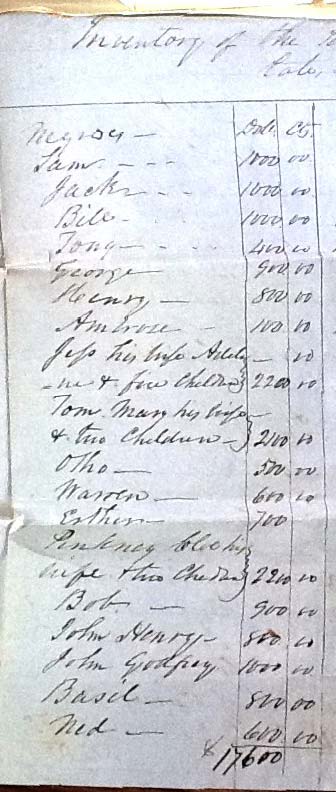 Inventory of the
Negroes — Dols. Cts.
Sam - - - 1000 00
Jack - - 1000 00
Bill - - 1000 00
Tony - - - 400 00
George — 900 00
Henry — 800 00
Ambrose - 100 00
Jess his wife Adely — 00
-ne & five Children} 2200 00
Tom Mary his wife —
& two Children —} 2100 00
Otho — 500 00
Warren — 600 00
Esther — 700
Pinkney his}
wife & two Children} 2200 00
Bob — 900 00
John Henry — 800 00
John Godfrey 1000 00
Basil — 800 00
Ned — 600 00
$17600